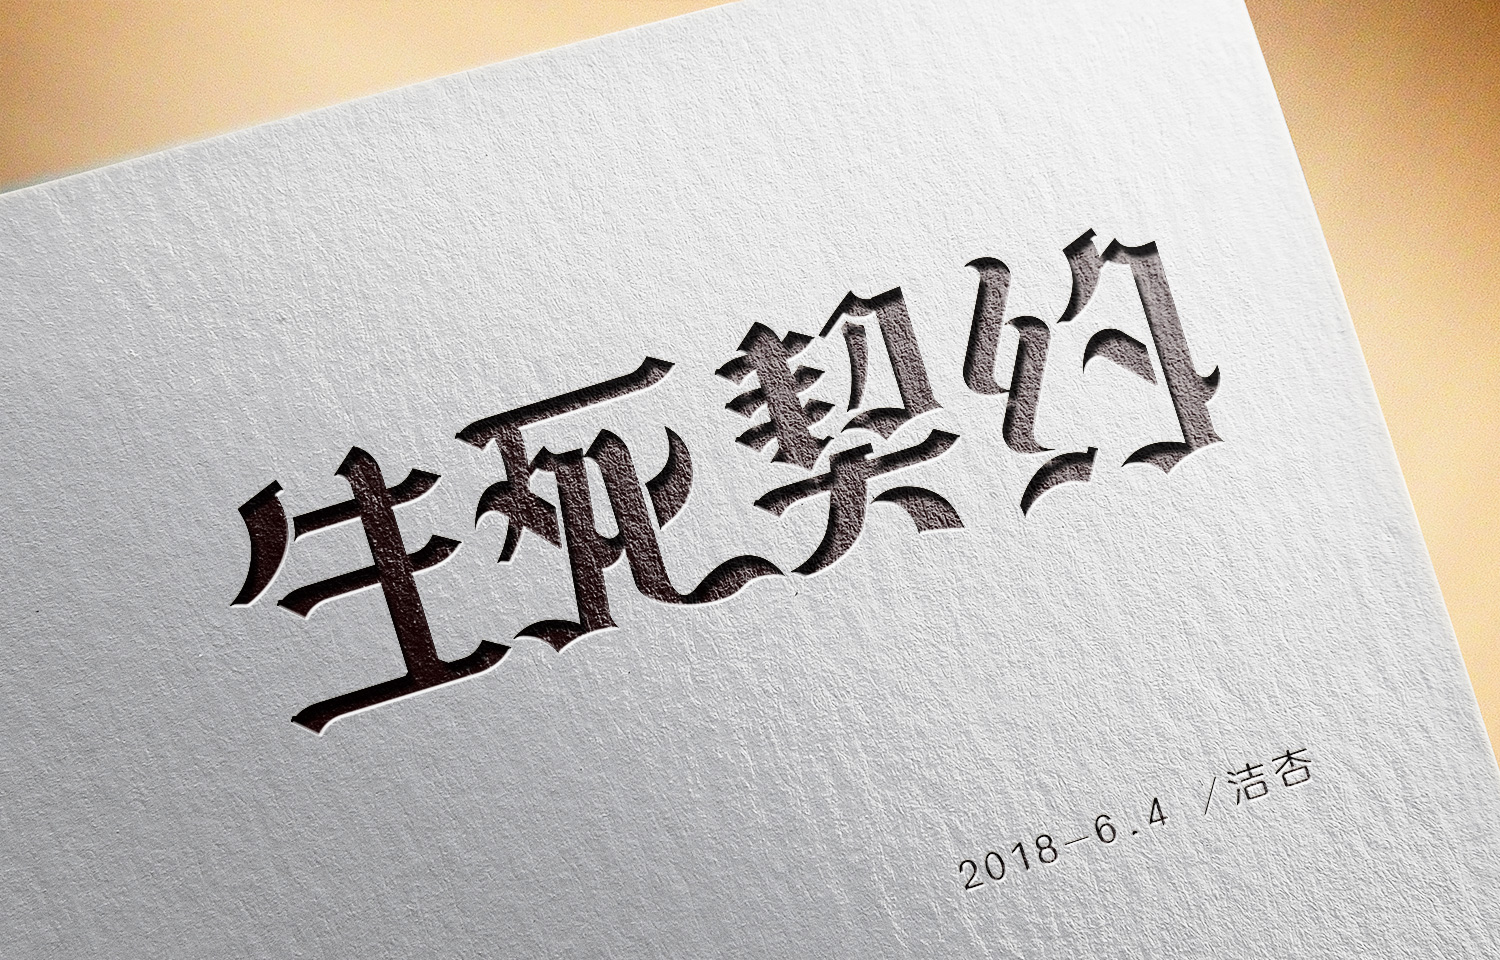 生死契约
2018-6.4 /洁杏